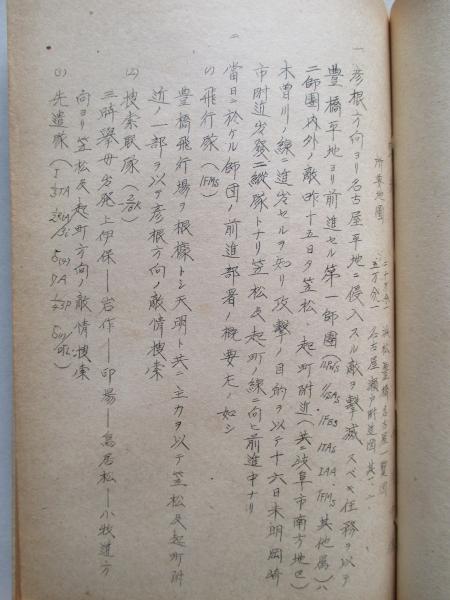 所要地図
二十万分一 浜松 豊橋 名古屋 一覧図
五万分一 名古屋 瀬戸 附近図 其ノ二
一 彦根方向ヨリ名古屋平地ニ侵入スル敵ヲ撃滅スベキ任務ヲ以テ
豊橋平地ヨリ前進セル第一師團( 其他属)ハ
二師團内外ノ敵昨十五日夕笠松、起町附近(共ニ岐阜市南方地区)
木曽川ノ線ニ進出セルヲ知リ攻撃ノ目的ヲ以テ十六日未明岡崎
市附近出發二縦隊トナリ笠松及起町ノ線ニ向ヒ前進中ナリ
二 當日ニ於ケル師団ノ前進部署ノ概要左ノ如シ
(1) 飛行隊(1FMs)
豊橋飛行場ヲ根據トシ天明ト共ニ主力ヲ以テ笠松及起町附
近ノ一部ヲ以テ彦根方向ノ敵情捜索
(2) 捜索隊
三時擧母出発上伊保―岩作―印場―鳥居松―小牧道方
向ヨリ笠松及起町方向ノ敵情捜索
(3) 先遣隊